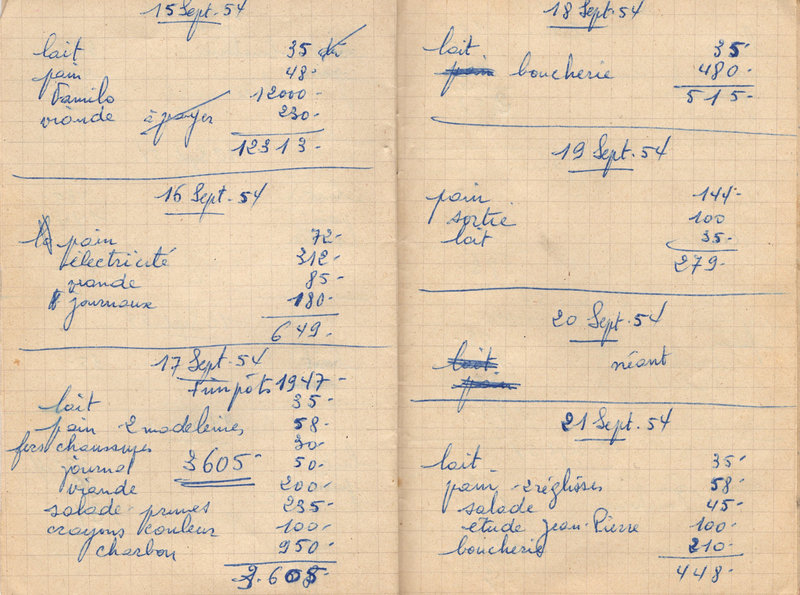 15 Sept. 54
lait 35
pain 48-
Familo 12000-
viande à payer 230-
12313-
16 Sept. 54
pain 72-
électricité 312-
viande 85-
journaux 180-
649-
17 Sept. 54
impôts 1947-
lait 35-
pain 2 madeleines 58-
fers chaussures 30-
journal 3605- 50-
viande 200-
salade prunes 235-
crayons couleur 100-
charbon 950-
3.605-
18 Sept. 54
lait 35-
pain boucherie 480-
515-
19 Sept. 54
pain 144-
sortie 100
lait 35-
279-
20 Sept. 54
lait néant
pain
21 Sept. 54
lait 35-
pain - 2 réglisses 58-
salade 45-
étude Jean-Pierre 100-
boucherie 210-
448-